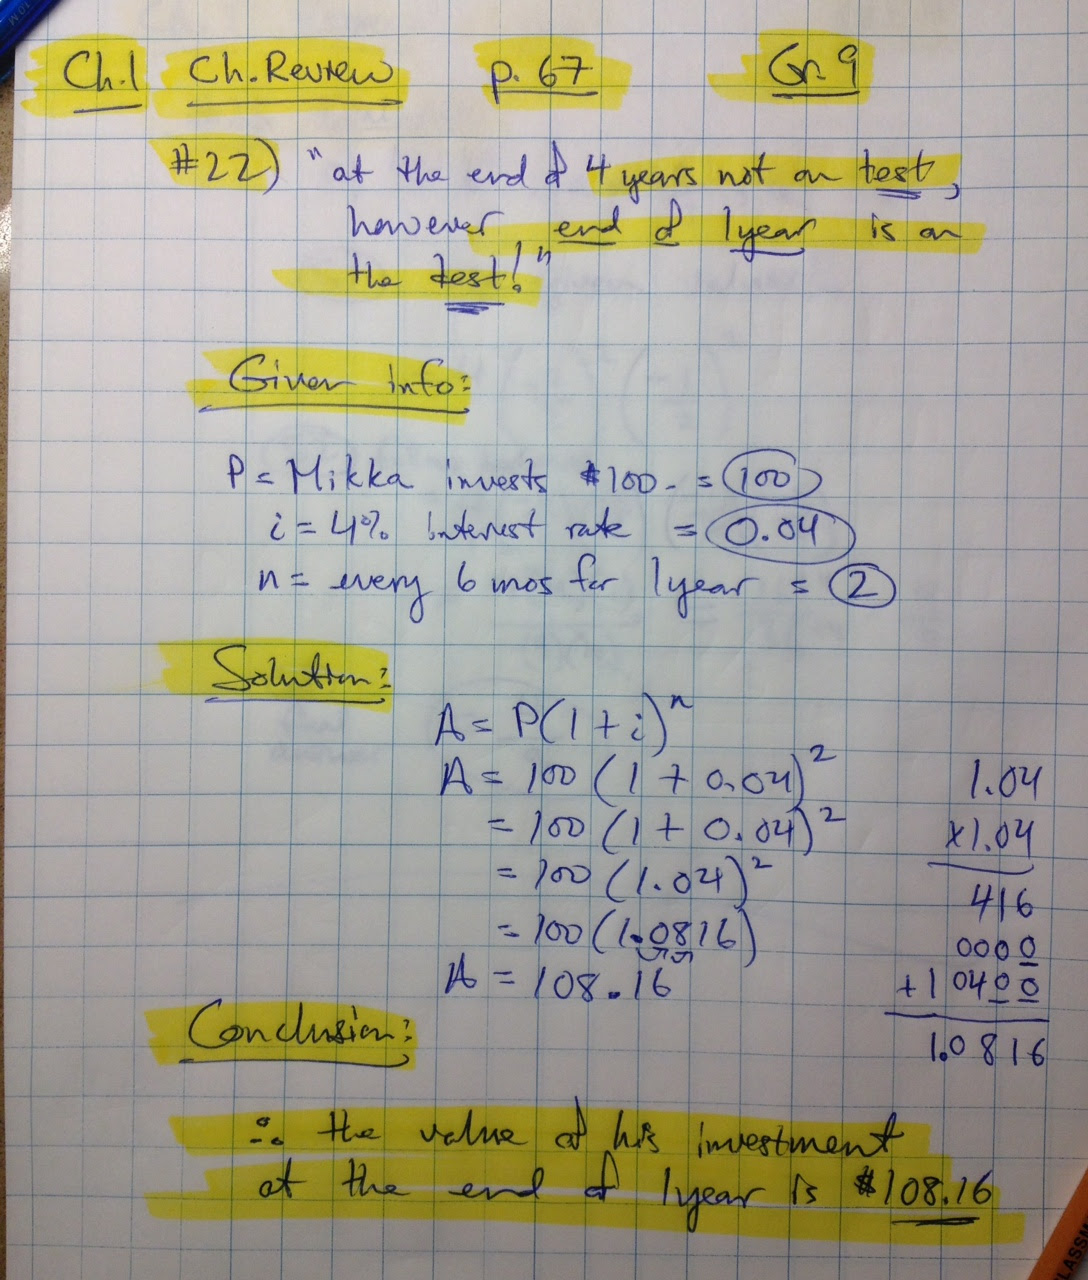 Ch.1 Ch. Review p. 67 Gr. 9
#22) "at the end of 4 years not on test,
however end of 1 year is on
the test!"
Given info:
P = Mikka invests $100 - = 100
i = 4% interest rate = 0.04
n = every 6 mos for 1 year = 2
Solution:
A = P(1 + i)^n
A = 100 (1 + 0.04)^2
= 100 (1 + 0.04)^2
= 100 (1.04)^2
= 100 (1.0816)
A = 108.16
1.04
x1.04
416
0000
+10400
1.0816
Conclusion:
∴ the value of his investment
at the end of 1 year is $108.16